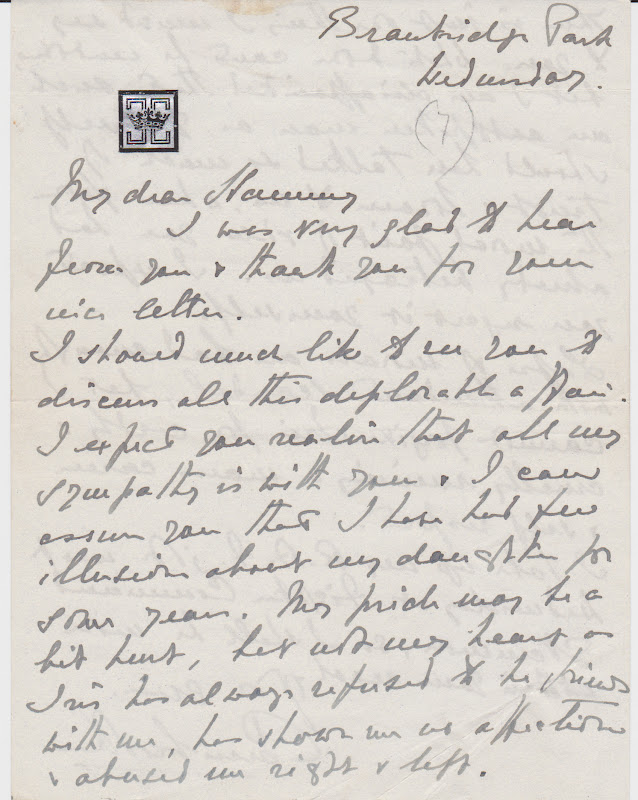 Brambridge Park
Wednesday.
(7)
My dear
I was very glad to hear
from you & thank you for your
nice letter.
I should much like to see you to
discuss all this deplorable affair.
I expect you realise that all my
sympathy is with you & I can
assure you that I have had few
illusion about my daughter for
some years. My pride may be a
bit hurt, but not my heart as
Iris has always refused to be friends
with me, has shown me no affection
& abused me right & left.